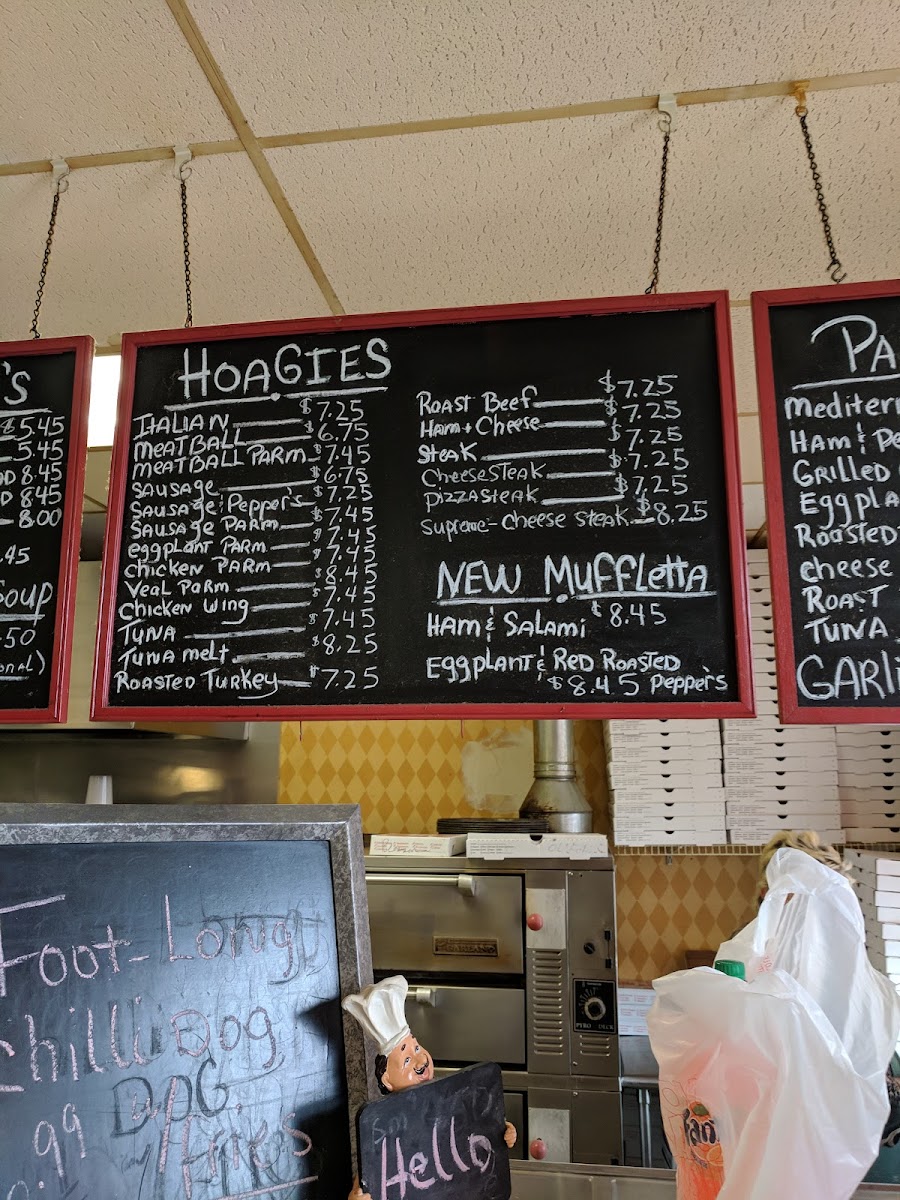 'S
$5.45
5.45
8.45
8.45
8.00
.45
Soup
.50
HOAGIES
ITALIAN $7.25
MEATBALL $6.75
MEATBALL PARM $7.45
Sausage $6.75
Sausage & Pepper's $7.25
Sausage PARM $7.45
eggplant PARM $7.45
chicken PARM $7.45
Veal Parm $8.45
Chicken Wing $7.45
TUNA $7.45
Tuna melt $8.25
Roasted Turkey $7.25
Roast Beef $7.25
Ham + Cheese $7.25
Steak $7.25
CheeseSteak $7.25
PizzaSteak $7.25
Supreme - cheese steak $8.25
NEW Muffletta
Ham & Salami $8.45
Eggplant & Red Roasted
$8.45 Pepper's
PA
Mediterr
Ham & Pe
Grilled
Eggpla
Roasted
cheese
Roast
Tuna
GARLi
Foot-Long
Chilli Dog
DOG
.99
Fries
Hello
PYRO DECK